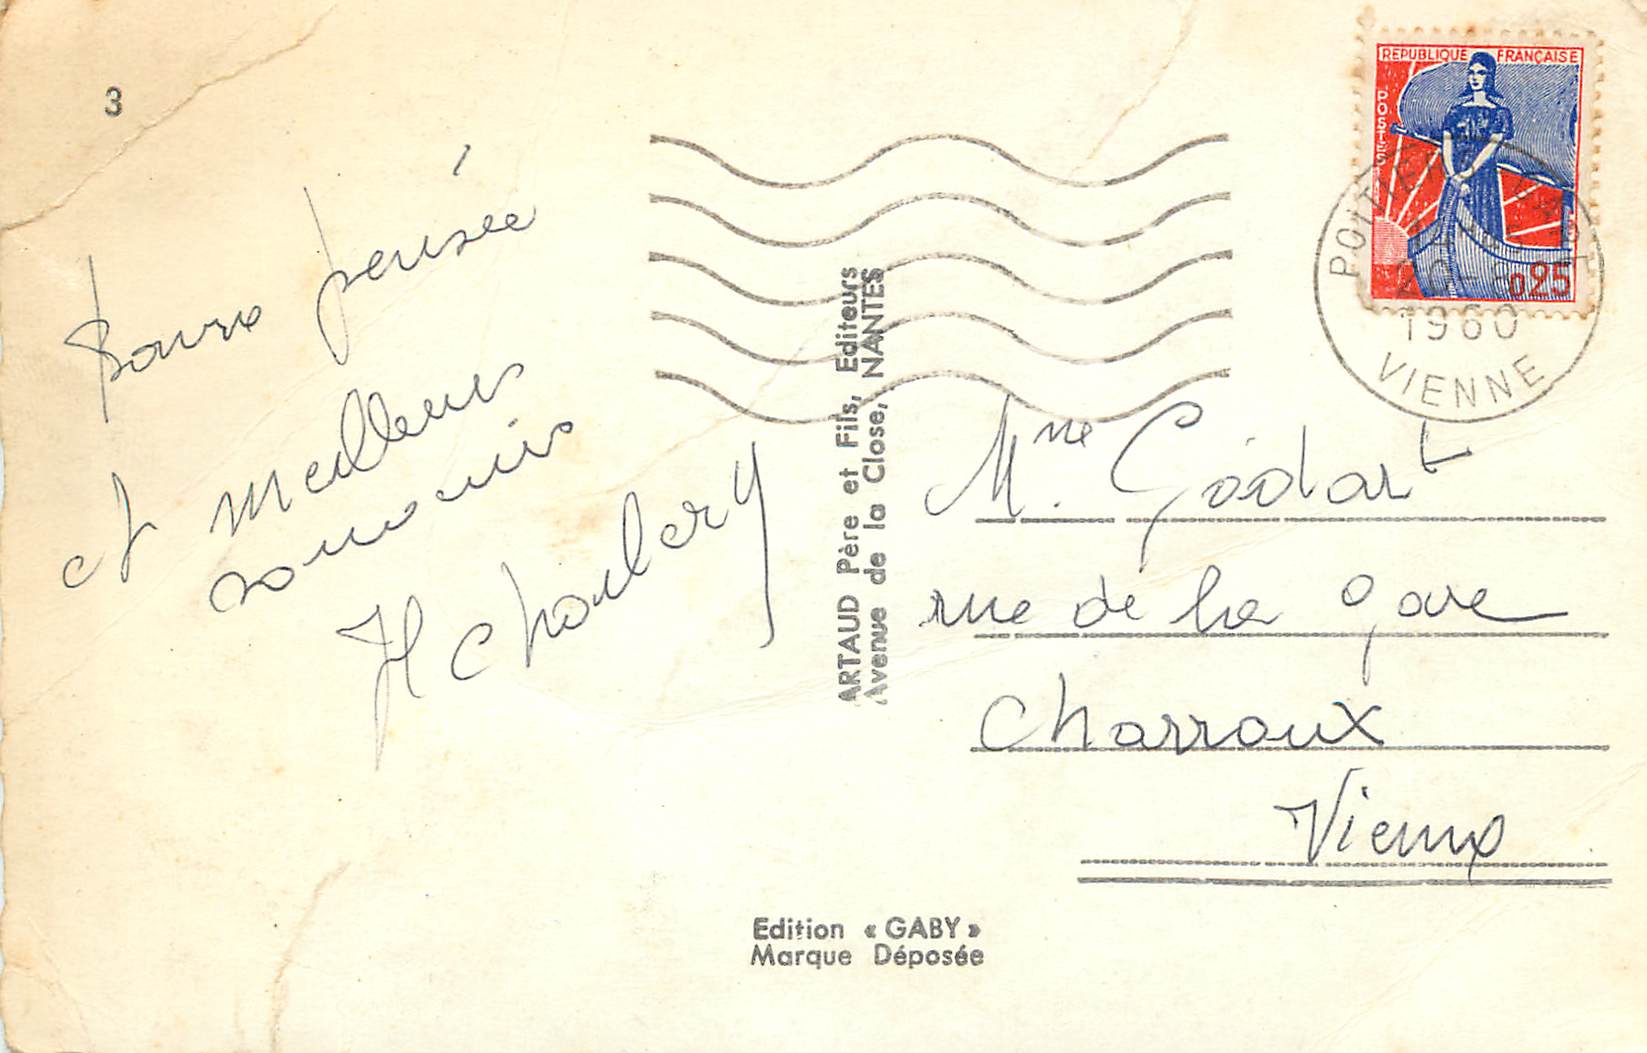 3
Bonne pensée
et meilleurs
souvenirs
REPUBLIQUE FRANÇAISE
POSTES
0,25
POITIERS
1960
VIENNE
ARTAUD Père et Fils, Editeurs
Avenue de la Close, NANTES
Mme Godart
rue de la gare
Charroux
Vienne
Edition « GABY »
Marque Déposée